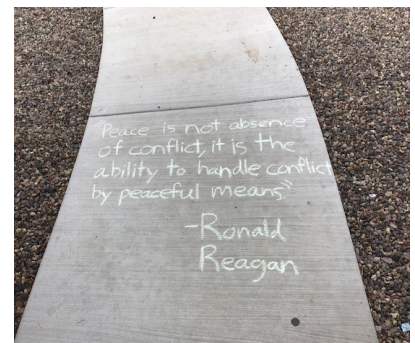 "Peace is not absence
of conflict, it is the
ability to handle conflict
by peaceful means."
-Ronald
Reagan